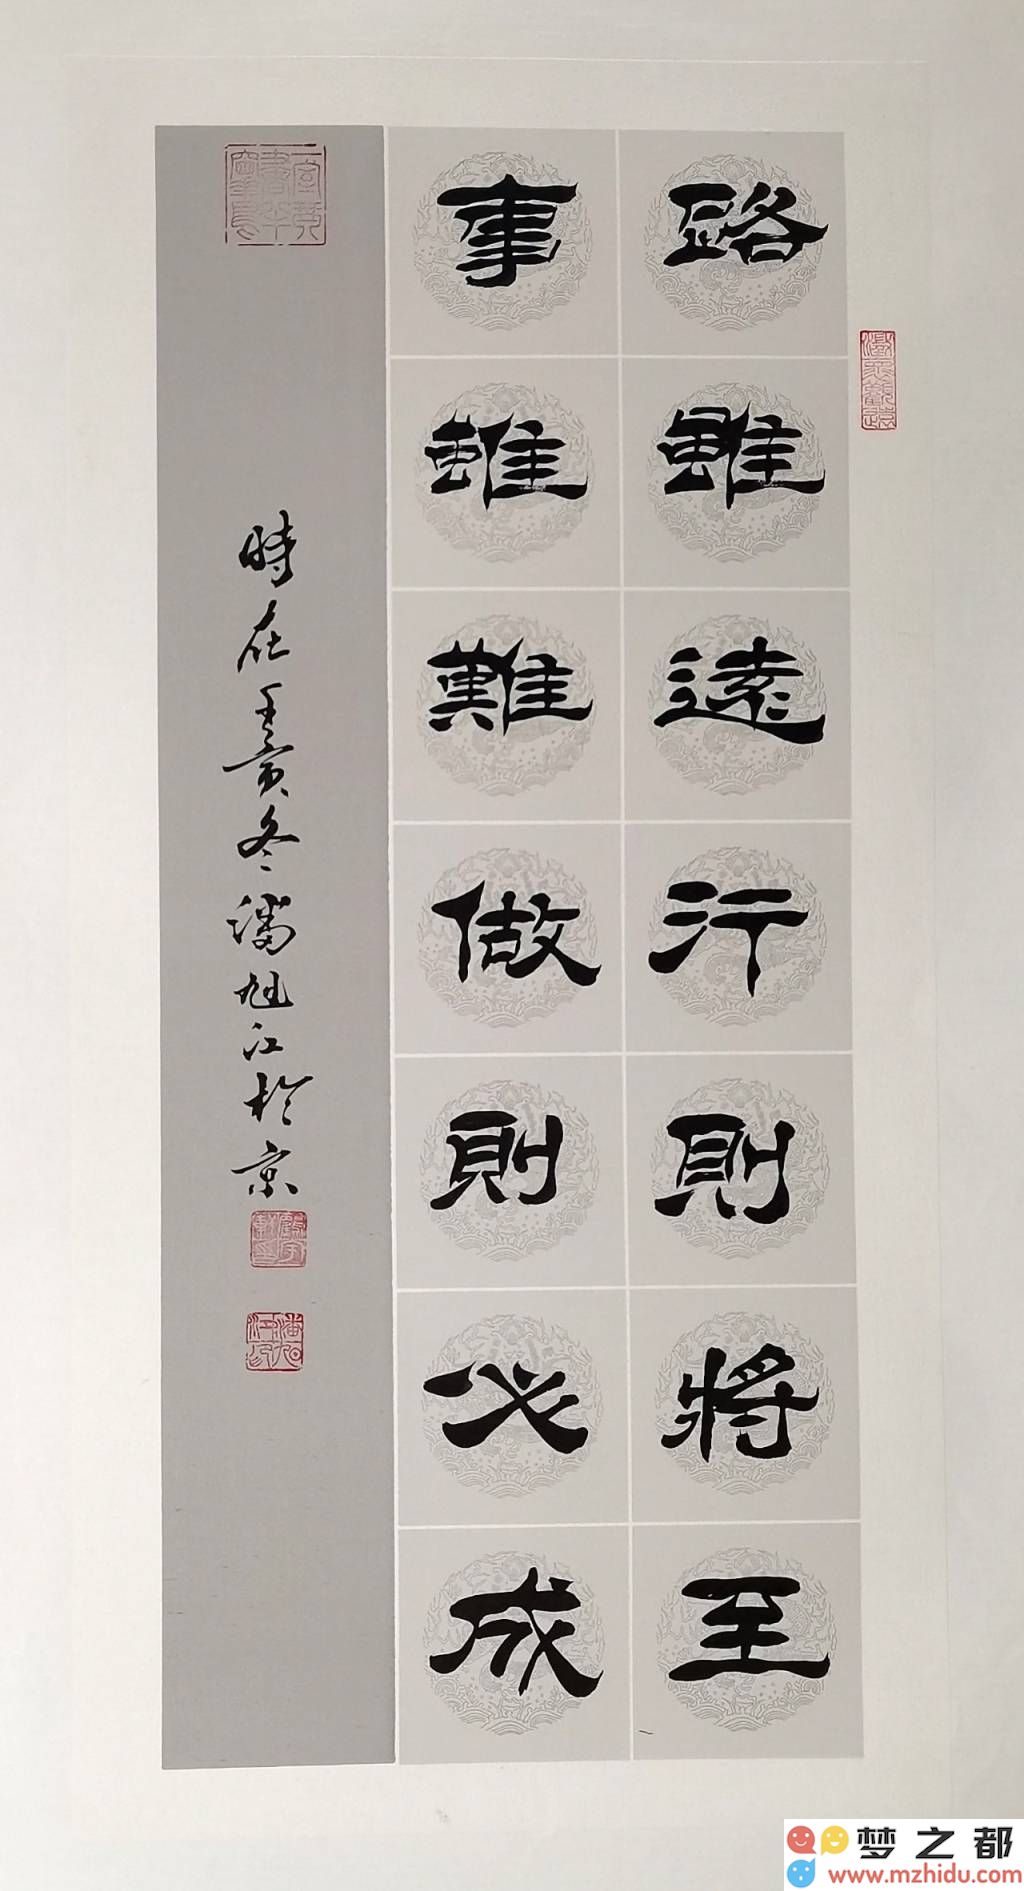 路雖遠行則將至
事雖難做則必成
時在壬寅冬潘旭江於京
梦之都
www.mzhidu.com